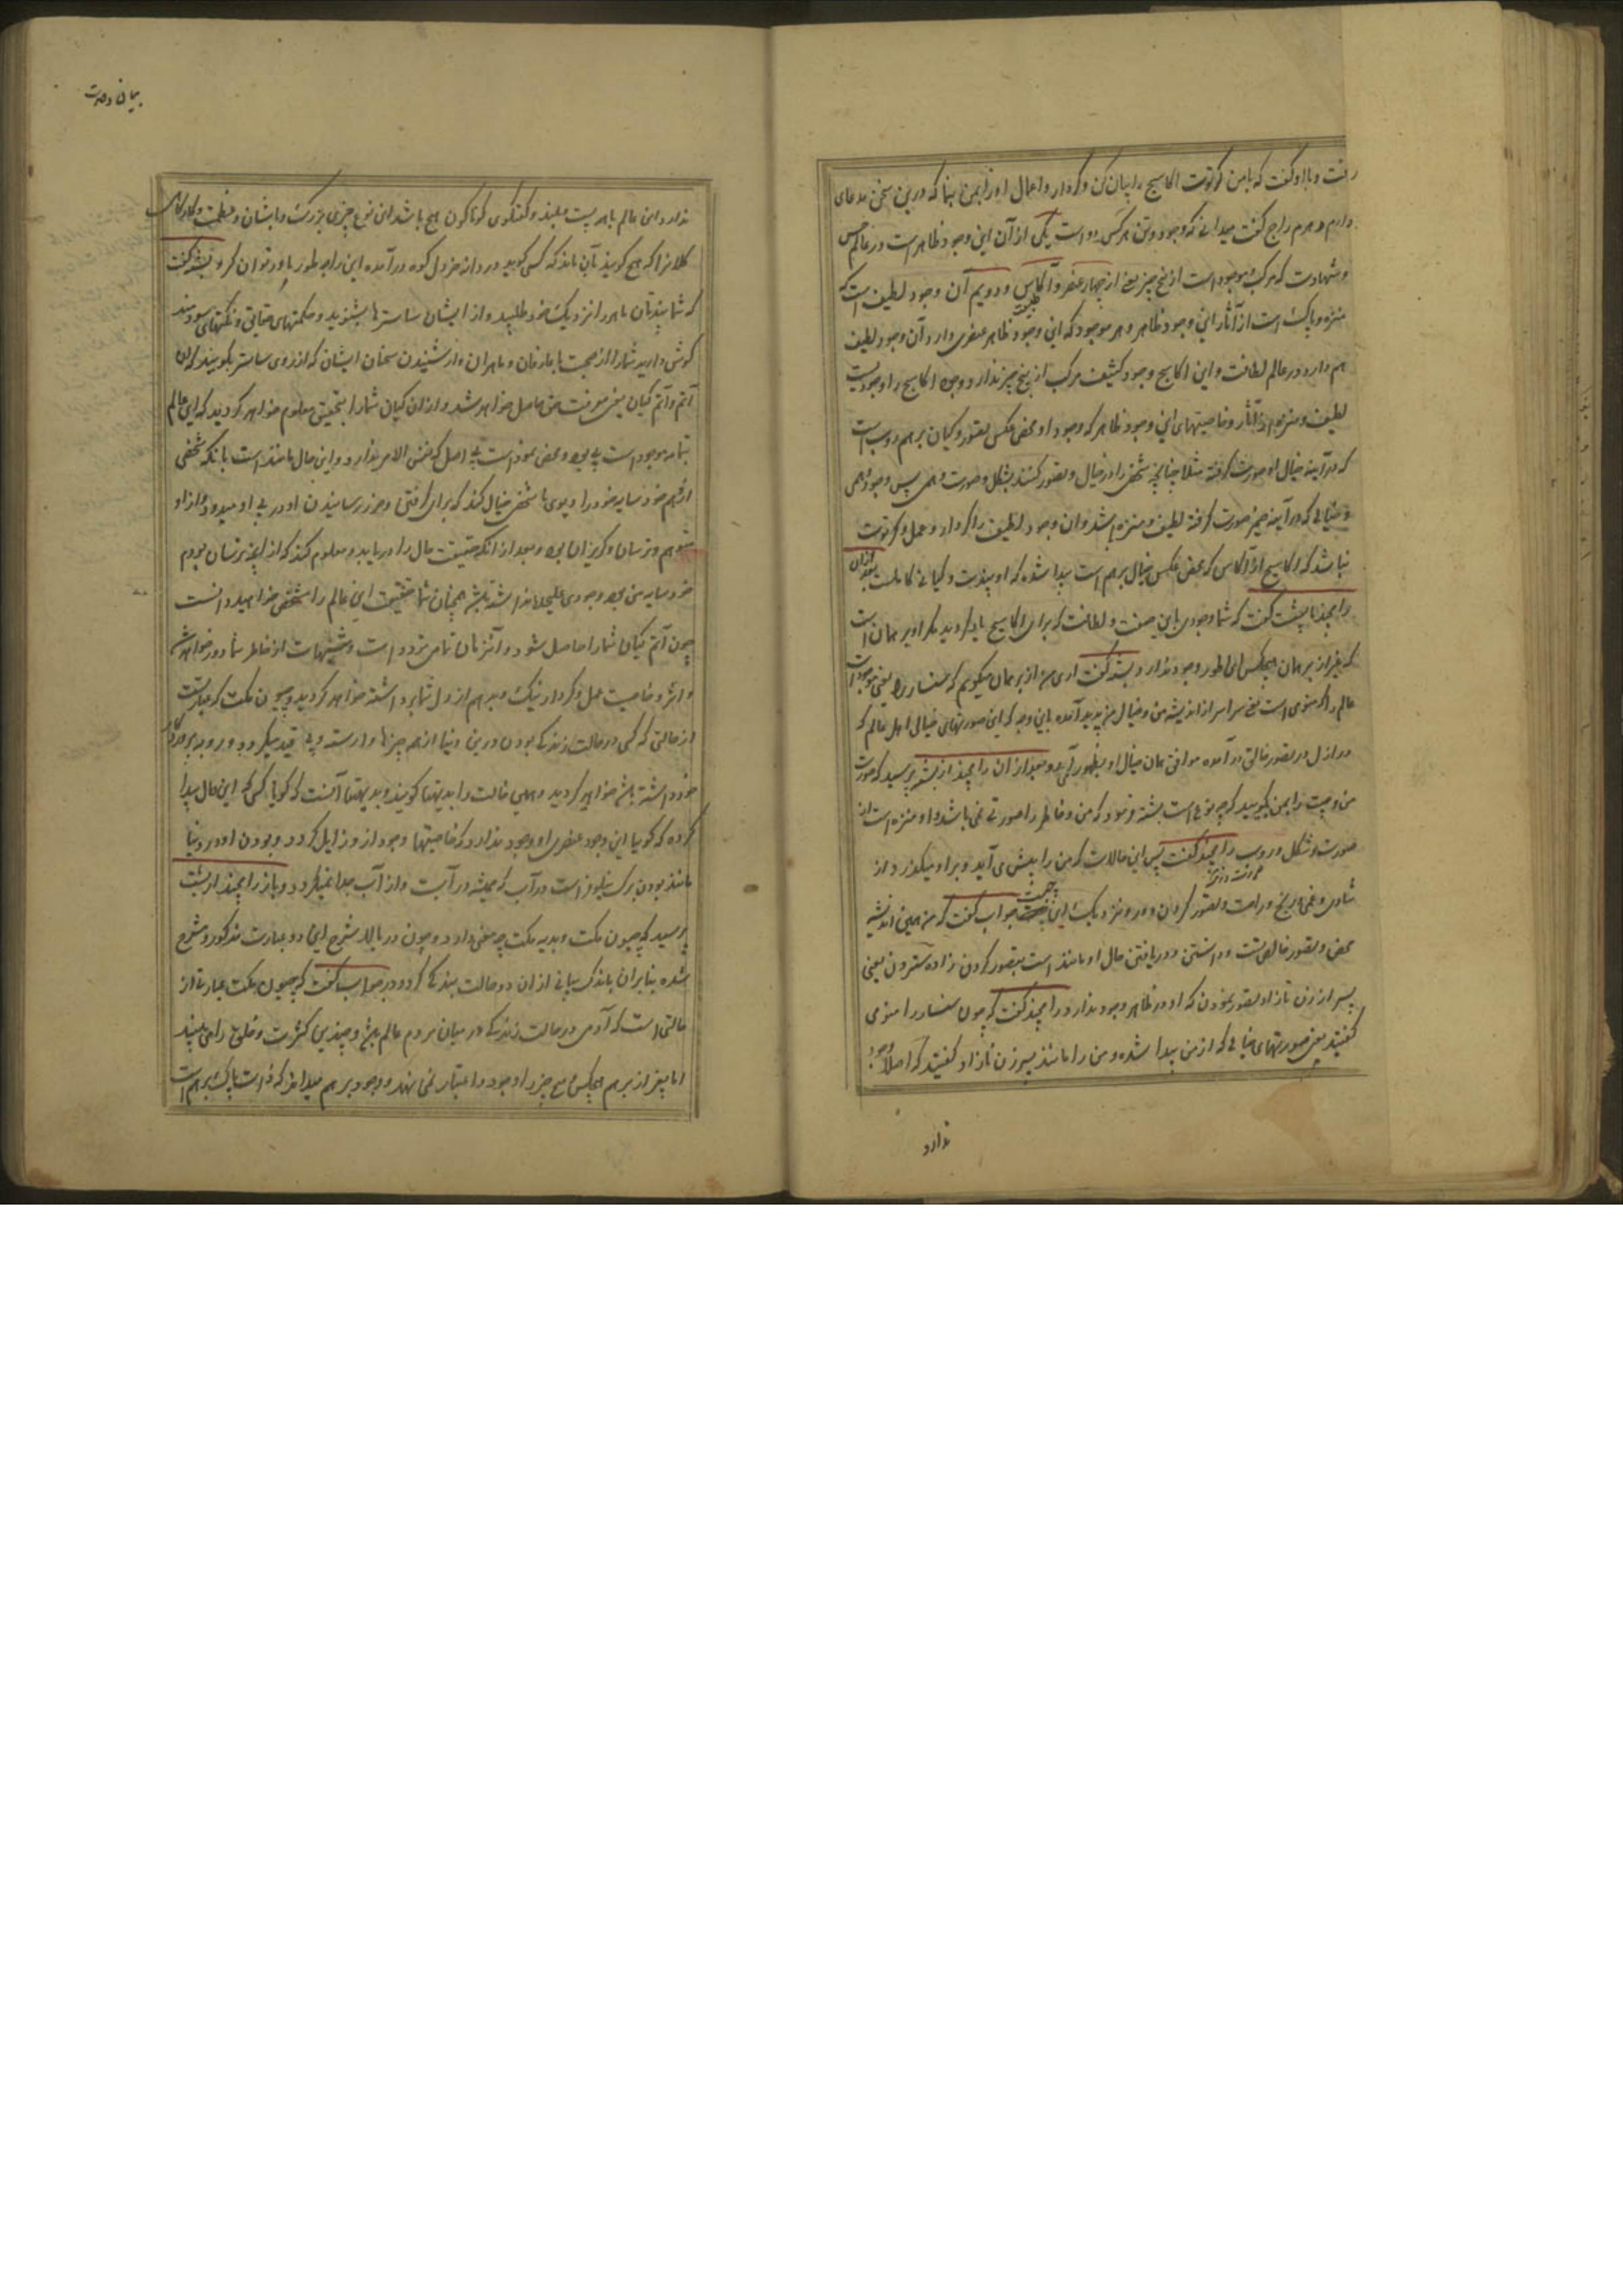 رفت و با او گفت که با من کرتوت اکاسج را بیان کن و کردار و اعمال او را بمن بنما که درین سخن مدعای
دارم دهرم راج گفت میدانی که وجود و تن هر کس دو است یکی از آن این وجود ظاهر است در عالم حس
و شهادت که مرکب موجود است از پنج چیز یعنی از چهار عنصر و آکاس و دویم آن وجود لطیف است که
منزه و پاک است از آثار این وجود ظاهر و هر موجود که این وجود ظاهر عنصری دارد آن وجود لطیف
هم دارد در عالم لطافت و این اکاسج وجود کثیف مرکب از پنج چیز ندارد و وجود اکاسج را وجودیست
لطیف و منزه از آثار و خاصیتهای این وجود ظاهر که وجود او محض عکس تصور و کیان برهم روپ است
که در آینه خیال او صورت گرفته مثلا چنانچه شخصی را در خیال و تصور کنند بشکل و صورت وهمی پس وجود وهمی
و خیالی که در آینه ضمیر صورت گرفته لطیف و منزه باشد و آن وجود لطیف را کردار و عمل و کرتوت
نباشد که اکاسج از آکاس که محض عکس خیال برهم است پیدا شده که او پنڈت و کیانی کامل است بعد از آن
رامچند با بشت گفت که شما وجودی باین صفت و لطافت که برای اکاسج یاد کردید مگر او برهمان است
که بغیر از برهمان هیچکس این طور وجود ندارد بشت گفت آری من از برهمان میگویم که سنسار یعنی موجودات
عالم را که منوی است یعنی سراسر از اندیشه من و خیال من پدید آمده باین وجه که این صورتهای خیالی اهل عالم که
در ازل در تصور خالق در آمده موافق همان خیال او بظهور آمده و بعد از آن رامچند از بشت پرسید که صورت
من و چیت را بمن بگویید که چه نوع است بشت فرمود که من و خاطر را صورتی نمی باشد و او منزه است از
صورت و شکل و روپ رامچند گفت پس این حالات که من را پیش می آید و بر او میگذرد از
شادی و غمی و رنج و راحت و تصور کردن دور و نزدیک این چیست جواب گفت که من همین اندیشه
محض و تصور خالص است و دانستن و دریافتن حال او مانند است بتصور کردن زاده سترون یعنی
پسر از زن نازاد تصور نمودن که او در ظاهر وجود ندارد رامچند گفت که چون سنسار را منوی
گفتید یعنی صورتهای خیالی که از من پیدا شده و من را مانند پسر زن نازاد گفتید که اصلا وجود
ندارد
بیان وحدت
ندارد و این عالم با هر پست و بلند و گفتگوی گوناگون هیچ باشد این نوع چیزی بزرگ و با شان و عظمت و
کلانرا که هیچ گویند بآن ماند که کسی گوید در دانه خردل کوه در آمده این را چه طور باور توان کرد بشت گفت
که شما پنڈتان ماهر را نزدیک خود طلبید و از ایشان ساسترها بشنوید و حکمتهای حقانی و نکتهای سودمند
گوش دارید شما را از صحبت با عارفان و ماهران و از شنیدن سخنان ایشان که از روی ساستر بگویند
آتم و آتم کیان یعنی معرفت حق حاصل خواهد شد و از آن کیان شما را بتحقیق معلوم خواهد گردید که این عالم
بتمامه موجود است بی بود و محض نمود است بی اصل که نفس الامر ندارد و این حال مانند است بآنکه شخصی
از وهم خود سایه خود را دیوی یا شخصی خیال کند که برای گرفتن و ضرر رسانیدن او در پی او میدود و از او
متوهم و ترسان و گریزان بود و بعد از آنکه حقیقت حال را دریابد و معلوم کند که از آنچه ترسان بودم
خود سایه من بود وجودی علیحده نداشت بشت همچنان شما حقیقت این عالم را مشخص خواهید دانست
چون آتم کیان شما را حاصل شود و آنزمان تمامی تردد است و شبهات از خاطر شما دور خواهد شد
و اثر و خاصیت عمل و کردار نیک و بد هم از دل شما برداشته خواهد گردید و جیون مکت که عبارتست
از حالتی که کسی در حالت زندگی بودن درین دنیا از همه چیزها وارسته و بی قید میگردد و
خود داشته باشد خواهید گردید و همین حالت را بدیهتا گویند و بدیهتا آنست که گویا کسی که این حال پیدا
کرده که گویا این وجود عنصری او وجود ندارد که خاصیتها وجود از و زایل گردد و بودن او در دنیا
مانند بودن برگ نیلوفر است در آب که همیشه در آبست و از آب جدا نمیگردد و باز رامچند از بشت
پرسید که جیون مکت و بدیه مکت چه معنی دارد و چون در بالا شرح این دو عبارت مذکور و مشرح
شده بنابران باندک بیانی از آن دو حالت بسندگی کرد و در جواب گفت که جیون مکت عبارت از
حالتی است که آدمی در حالت زندگی در میان مردم عالم باشد و چندین کثرت و خلق را می بیند
اما بغیر از برهم هیچکس و هیچ چیز را وجود و اعتبار نمی نهند و وجود برهم میداند که ذات پاک برهم است